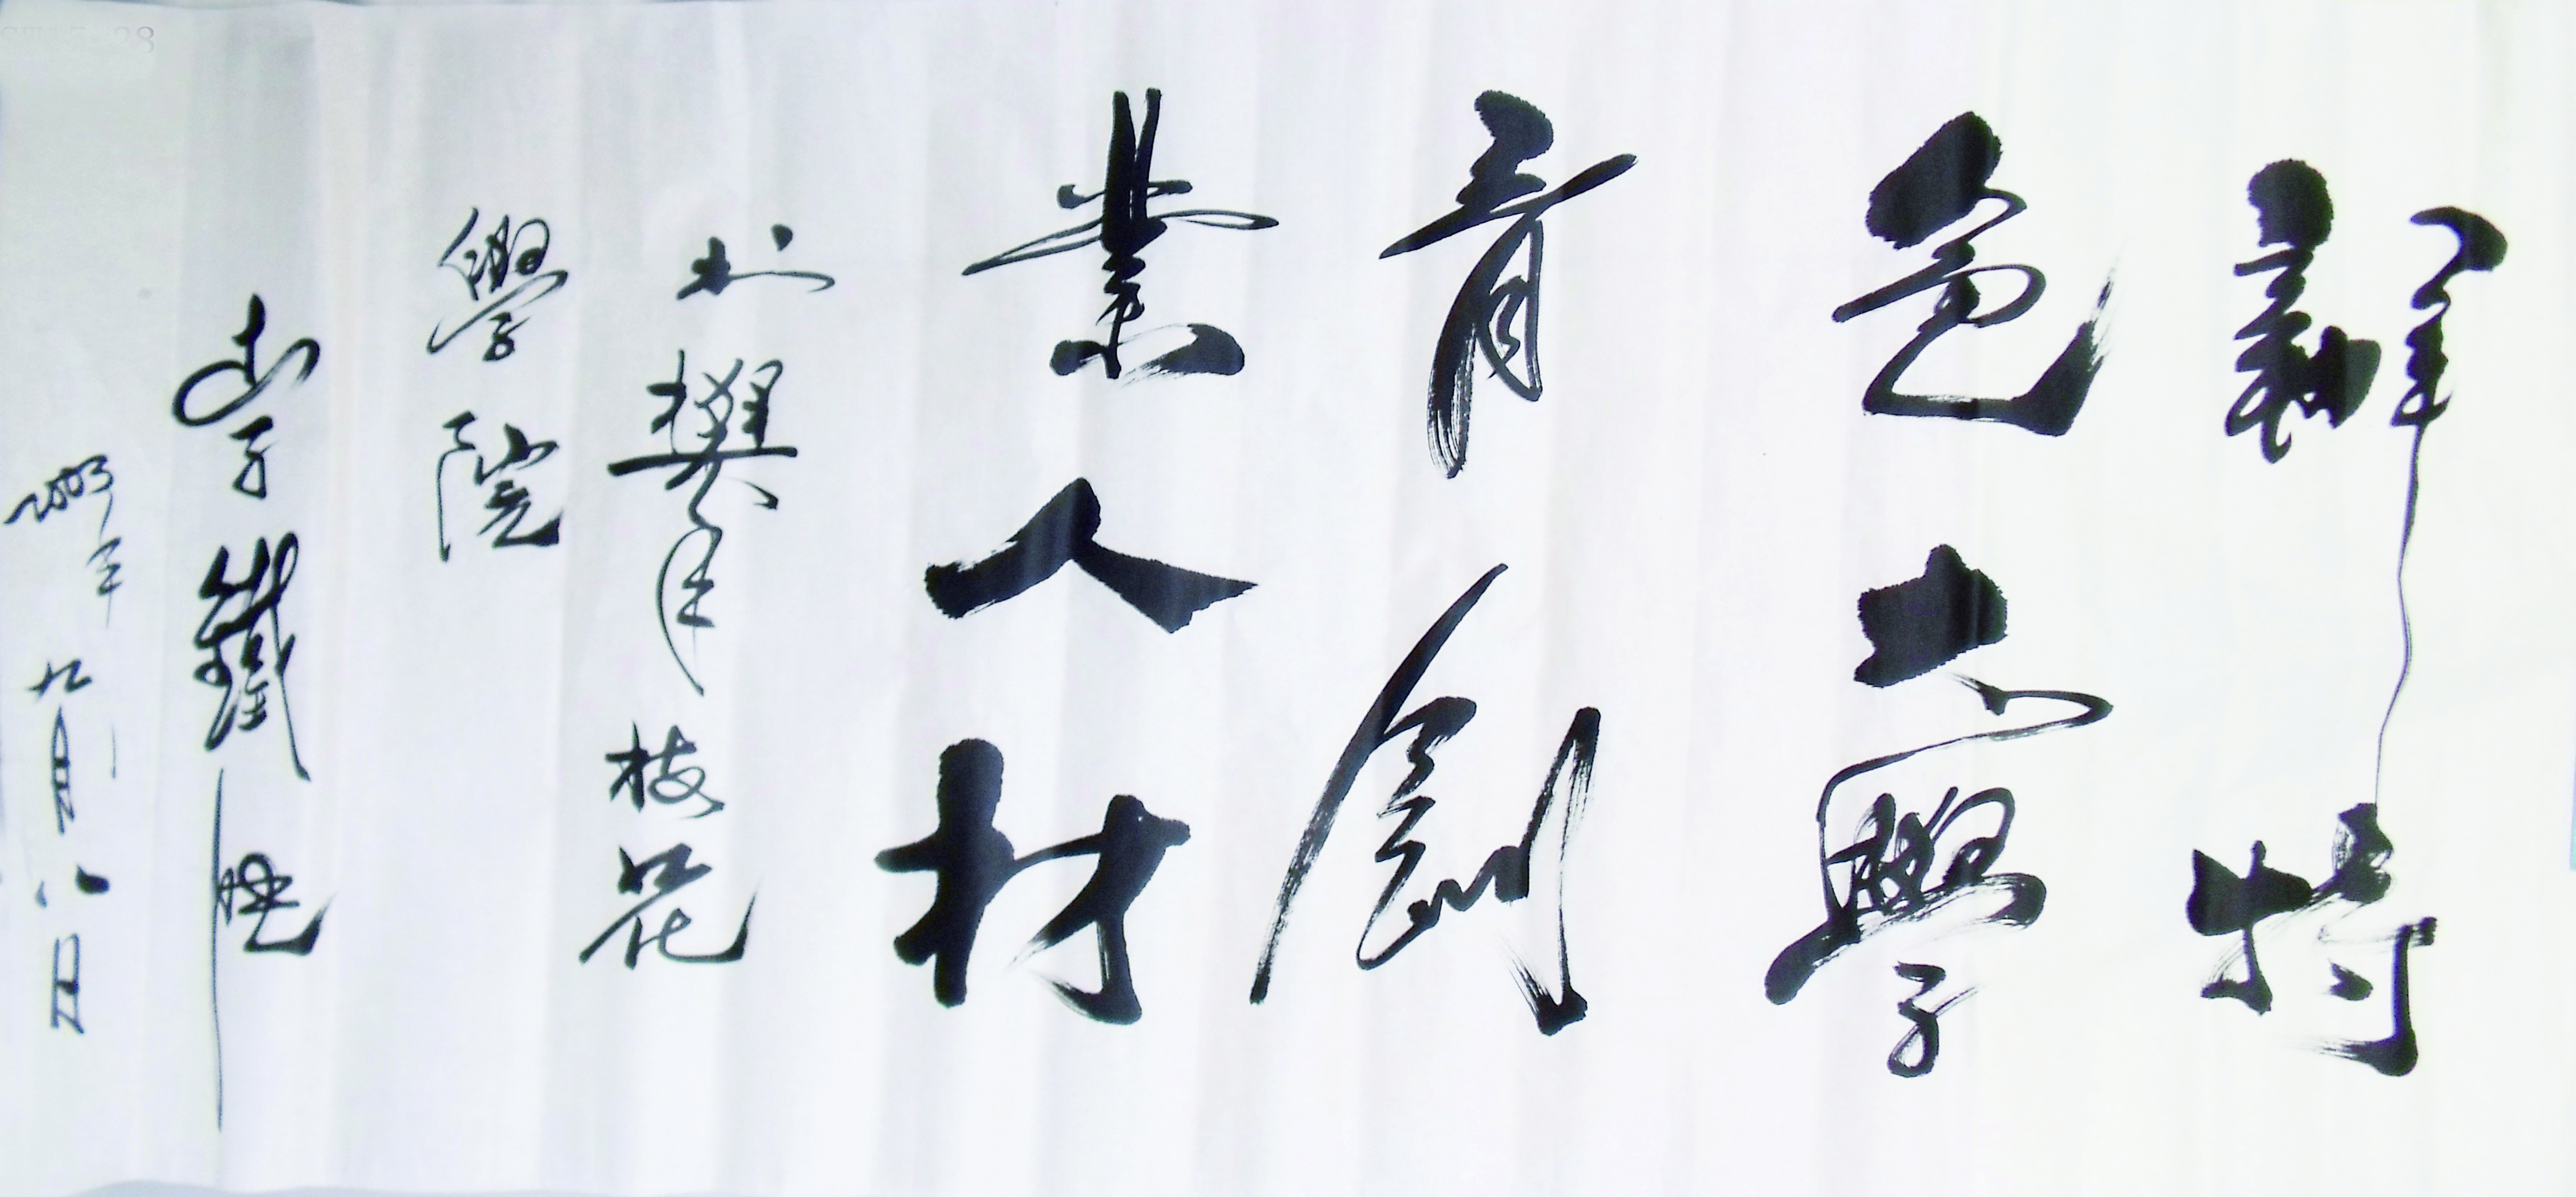 辦特
色大學
育創
業人材
於攀年枝花
學院
李鐵映
2003年
九月八日